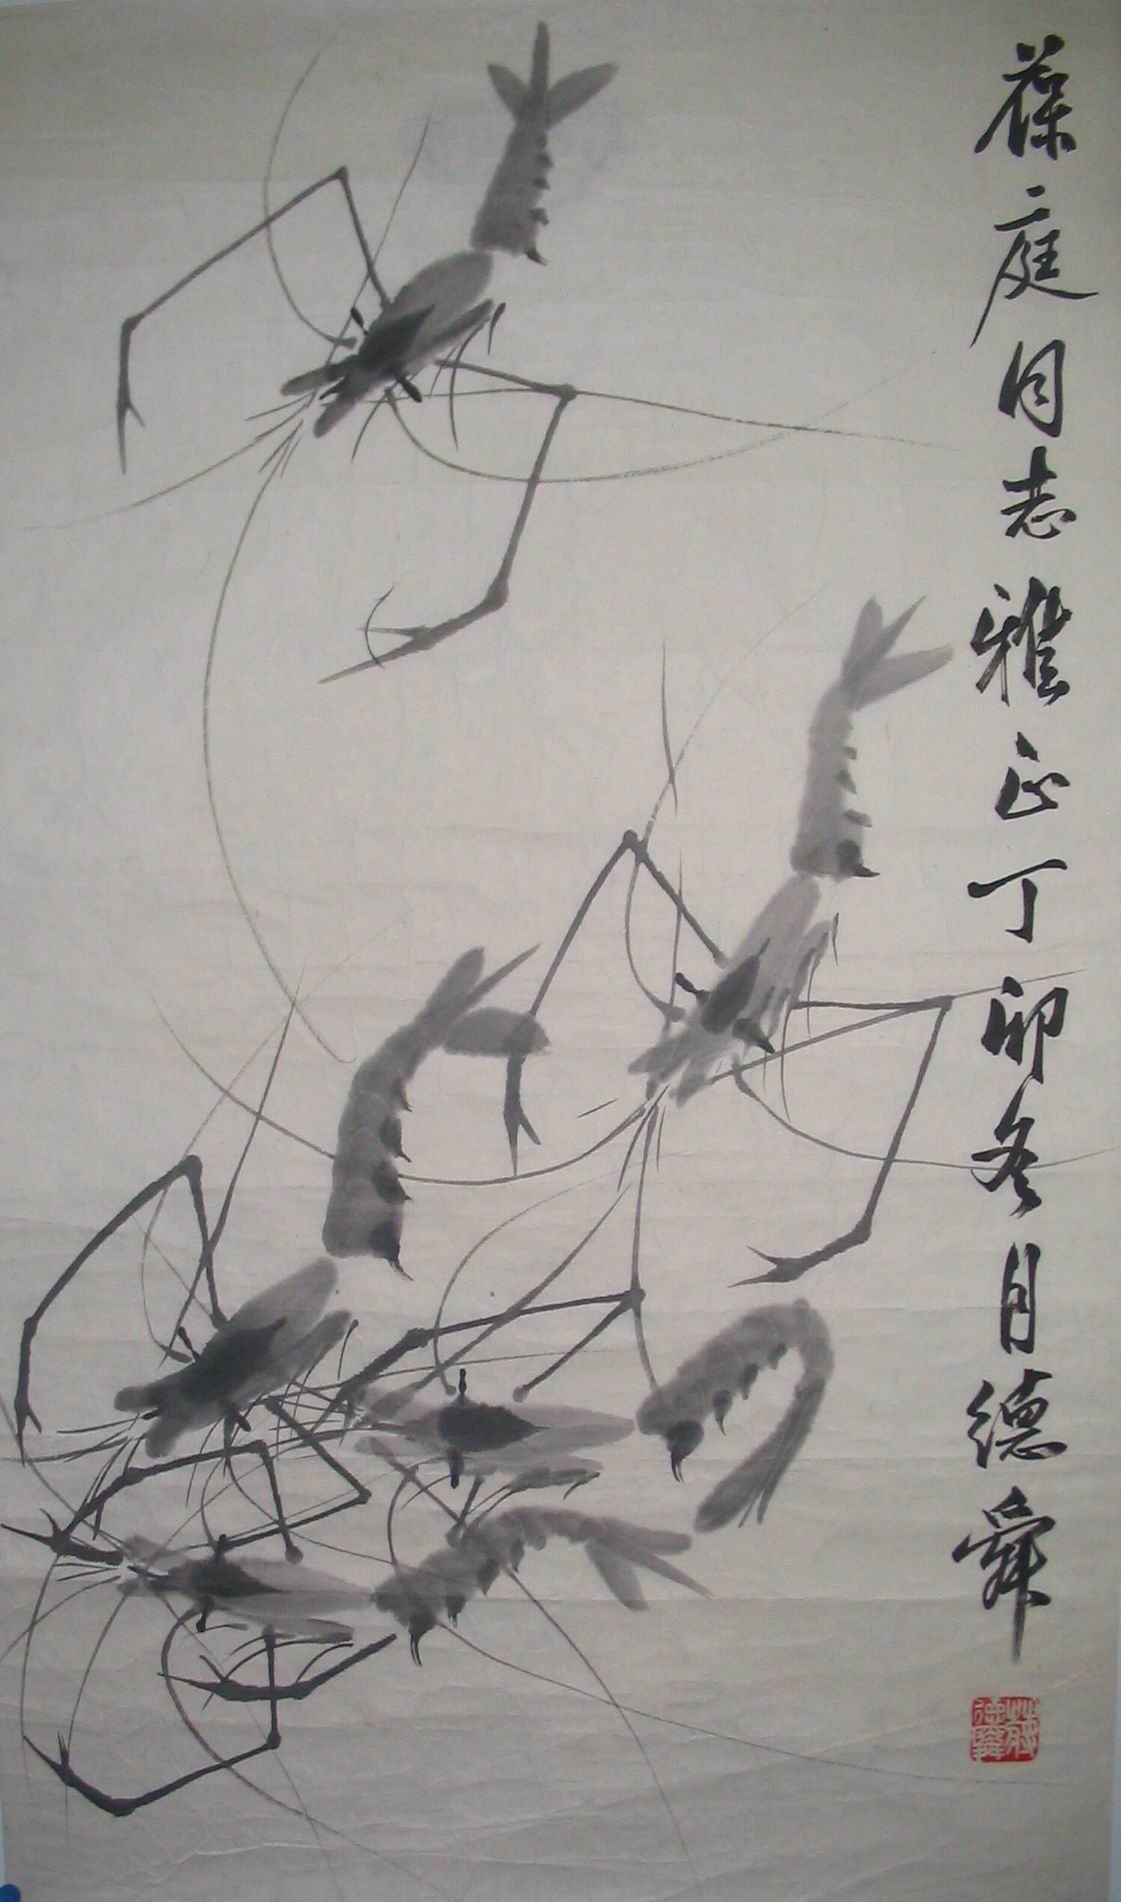 葆庭同志雅正丁卯冬月德舜